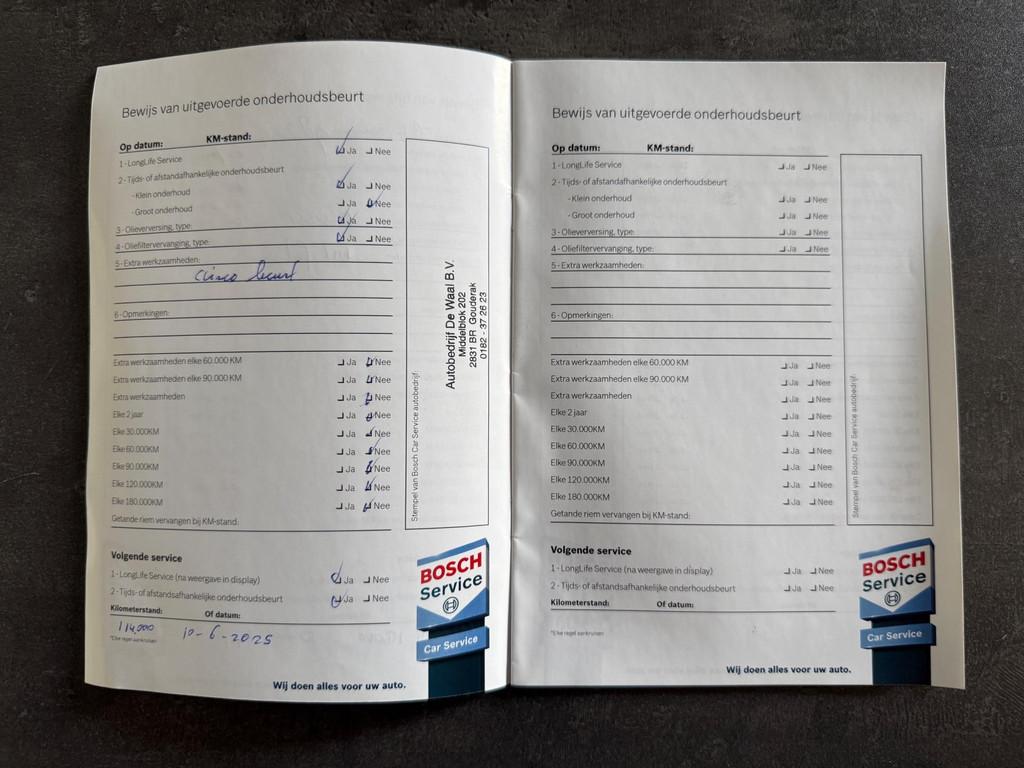 Bewijs van uitgevoerde onderhoudsbeurt
Op datum: KM-stand:
1 - LongLife Service Ja Nee
2 - Tijds- of afstandafhankelijke onderhoudsbeurt
- Klein onderhoud Ja Nee
- Groot onderhoud Ja Nee
3 - Olieverversing, type: Ja Nee
4 - Oliefiltervervanging, type: Ja Nee
5 - Extra werkzaamheden:
beurt
6 - Opmerkingen:
Extra werkzaamheden elke 60.000 KM Ja Nee
Extra werkzaamheden elke 90.000 KM Ja Nee
Extra werkzaamheden Ja Nee
Elke 2 jaar Ja Nee
Elke 30.000KM Ja Nee
Elke 60.000KM Ja Nee
Elke 90.000KM Ja Nee
Elke 120.000KM Ja Nee
Elke 180.000KM Ja Nee
Getande riem vervangen bij KM-stand:
Stempel van Bosch Car Service autobedrijf:
Autobedrijf De Waal B.V.
Middelblok 202
2831 BR Gouderak
0182 - 37 26 23
Volgende service
1 - LongLife Service (na weergave in display) Ja Nee
2 - Tijds- of afstandsafhankelijke onderhoudsbeurt Ja Nee
Kilometerstand: Of datum:
114000 10-6-2025
*Elke regel aankruisen
BOSCH
Service
Car Service
Wij doen alles voor uw auto.
Bewijs van uitgevoerde onderhoudsbeurt
Op datum: KM-stand:
1 - LongLife Service Ja Nee
2 - Tijds- of afstandafhankelijke onderhoudsbeurt
- Klein onderhoud Ja Nee
- Groot onderhoud Ja Nee
3 - Olieverversing, type: Ja Nee
4 - Oliefiltervervanging, type: Ja Nee
5 - Extra werkzaamheden:
6 - Opmerkingen:
Extra werkzaamheden elke 60.000 KM Ja Nee
Extra werkzaamheden elke 90.000 KM Ja Nee
Extra werkzaamheden Ja Nee
Elke 2 jaar Ja Nee
Elke 30.000KM Ja Nee
Elke 60.000KM Ja Nee
Elke 90.000KM Ja Nee
Elke 120.000KM Ja Nee
Elke 180.000KM Ja Nee
Getande riem vervangen bij KM-stand:
Stempel van Bosch Car Service autobedrijf:
Volgende service
1 - LongLife Service (na weergave in display) Ja Nee
2 - Tijds- of afstandsafhankelijke onderhoudsbeurt Ja Nee
Kilometerstand: Of datum:
*Elke regel aankruisen
BOSCH
Service
Car Service
Wij doen alles voor uw auto.